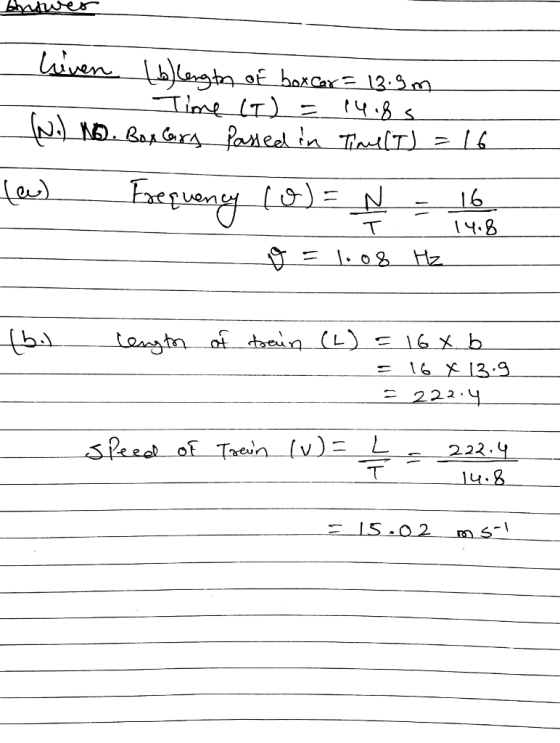 Answer
Given (b) length of boxcar = 13.9 m
Time (T) = 14.8 s
(N.) NO. Box Cars Passed in Time(T) = 16
(a) Frequency (ϑ) = N/T = 16/14.8
ϑ = 1.08 Hz
(b.) Length of train (L) = 16 × b
= 16 × 13.9
= 222.4
Speed of Train (V) = L/T = 222.4/14.8
= 15.02 m s-1